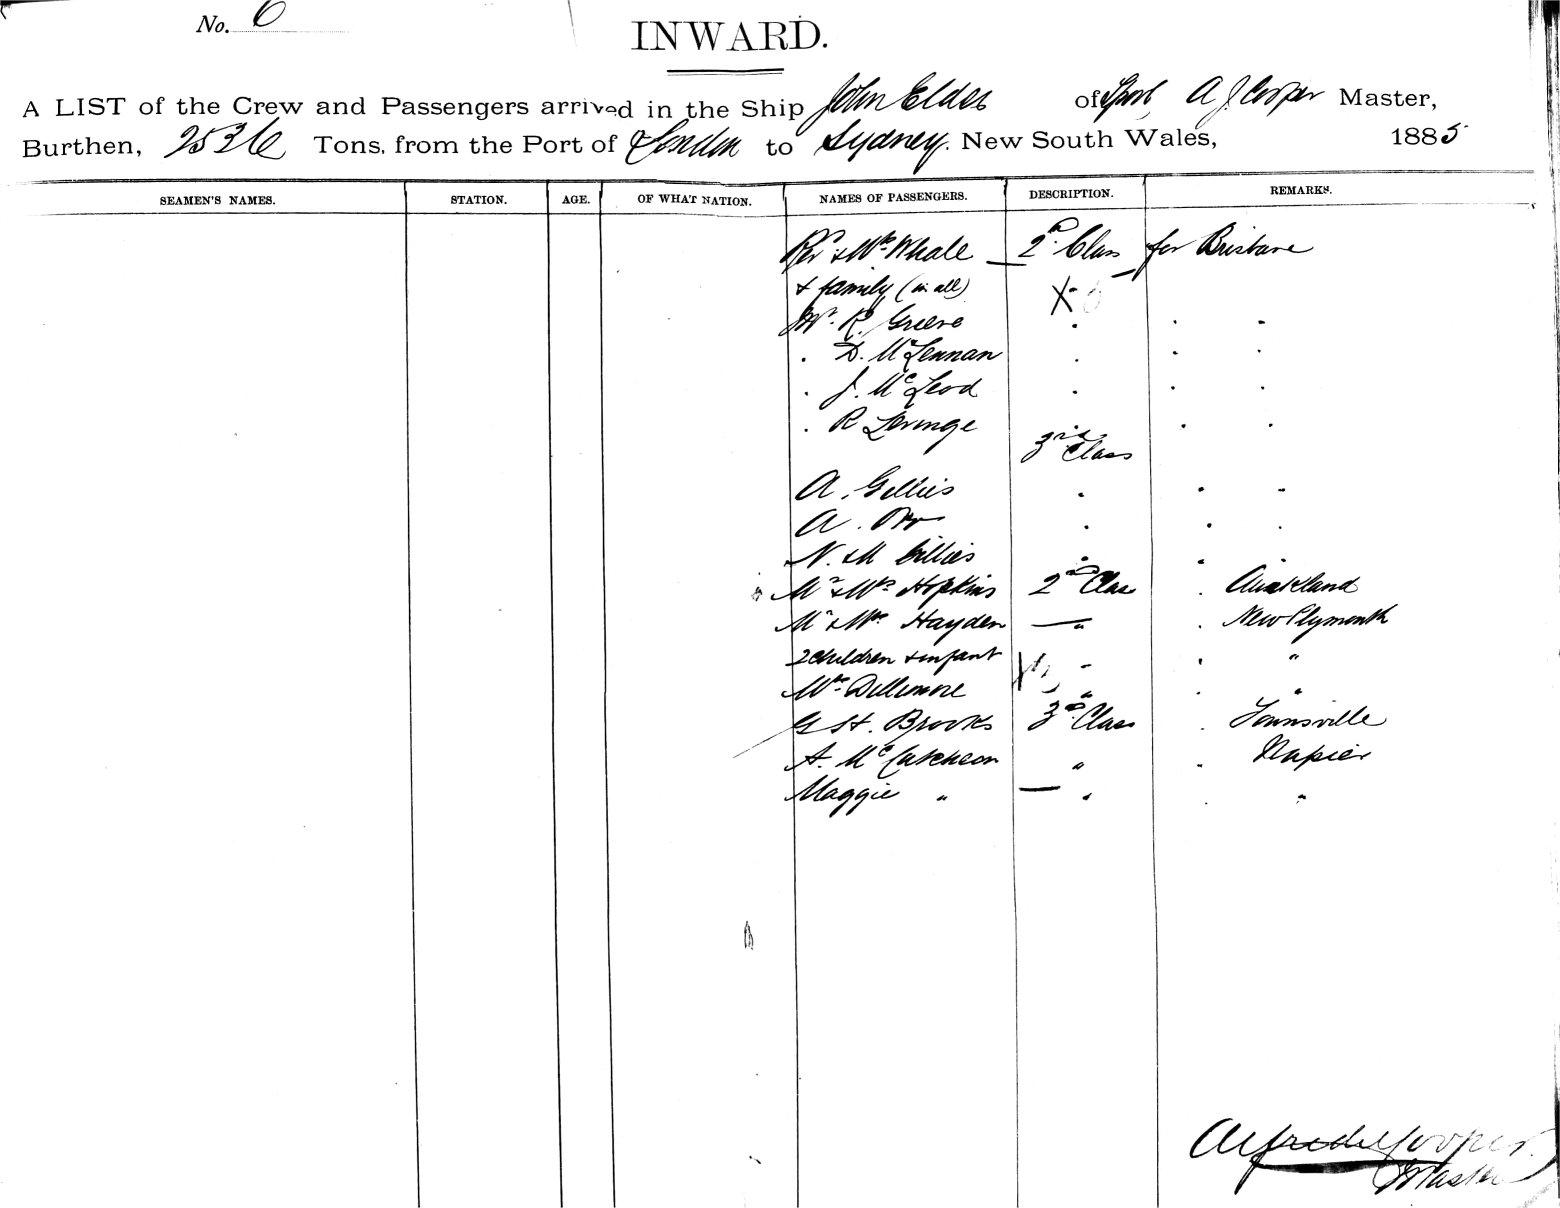 No. 6
INWARD.
A LIST of the Crew and Passengers arrived in the Ship John Elder of A J Cooper Master,
Burthen, 2536 Tons, from the Port of London to Sydney. New South Wales, 1885
SEAMEN'S NAMES. STATION. AGE. OF WHAT NATION. NAMES OF PASSENGERS. DESCRIPTION. REMARKS.
Revd & Mrs Whale 2nd Class for Brisbane
& family (in all) X
Mr. R. Greeve . . "
. D. McLennan . . .
. J. McLeod . . .
. R Levinge . .
3rd Class
A. Gillies . . "
A. Orr . . .
N. & M Gillies . . .
Mr & Mrs Hopkins 2nd Class . Auckland
Mr & Mrs Hayden " . New Plymouth
2 children & infant " . "
Mrs Dillimore " . "
G H. Brooks 3rd Class . Townsville
A. McCutcheon " . Napier
Maggie " " . "
Alfred J Cooper
Master